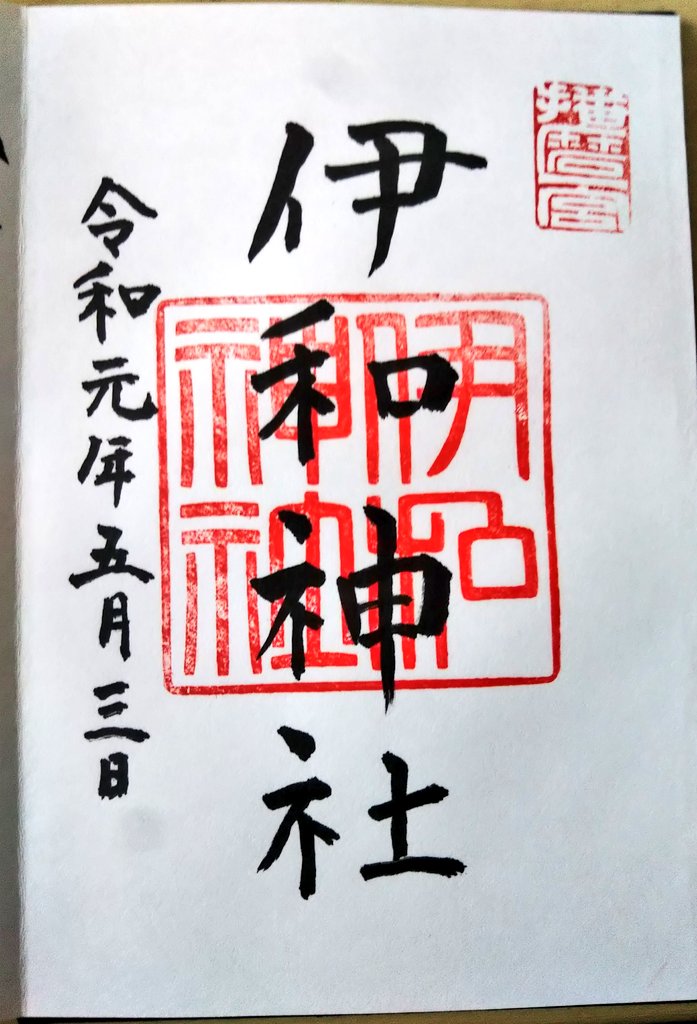 播磨一宮
伊和神社
伊和神社
令和元年五月三日